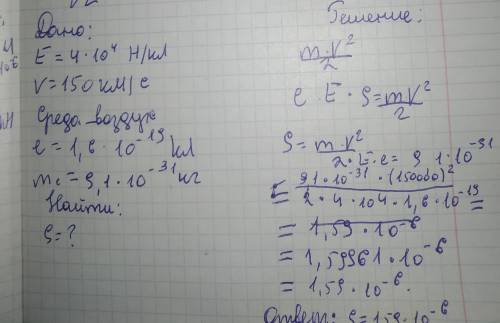 Дано:
E = 4·10⁴ Н/кл
V = 150 км/с
Среда воздух
e = 1,6·10⁻¹⁹ кл
mc = 9,1·10⁻³¹ кг
Найти:
S = ?
Решение:
m·v²/2
e E · S = mv²/2
S = m·v²/2·E·e = 9 1·10⁻³¹
= 91·10⁻³¹·(150000)²/2·4·104·1,6·10⁻¹⁹ =
= 1,59·10⁻⁶
= 1,59961·10⁻⁶
= 1,59·10⁻⁶.
Ответ: S=159·10⁻⁶